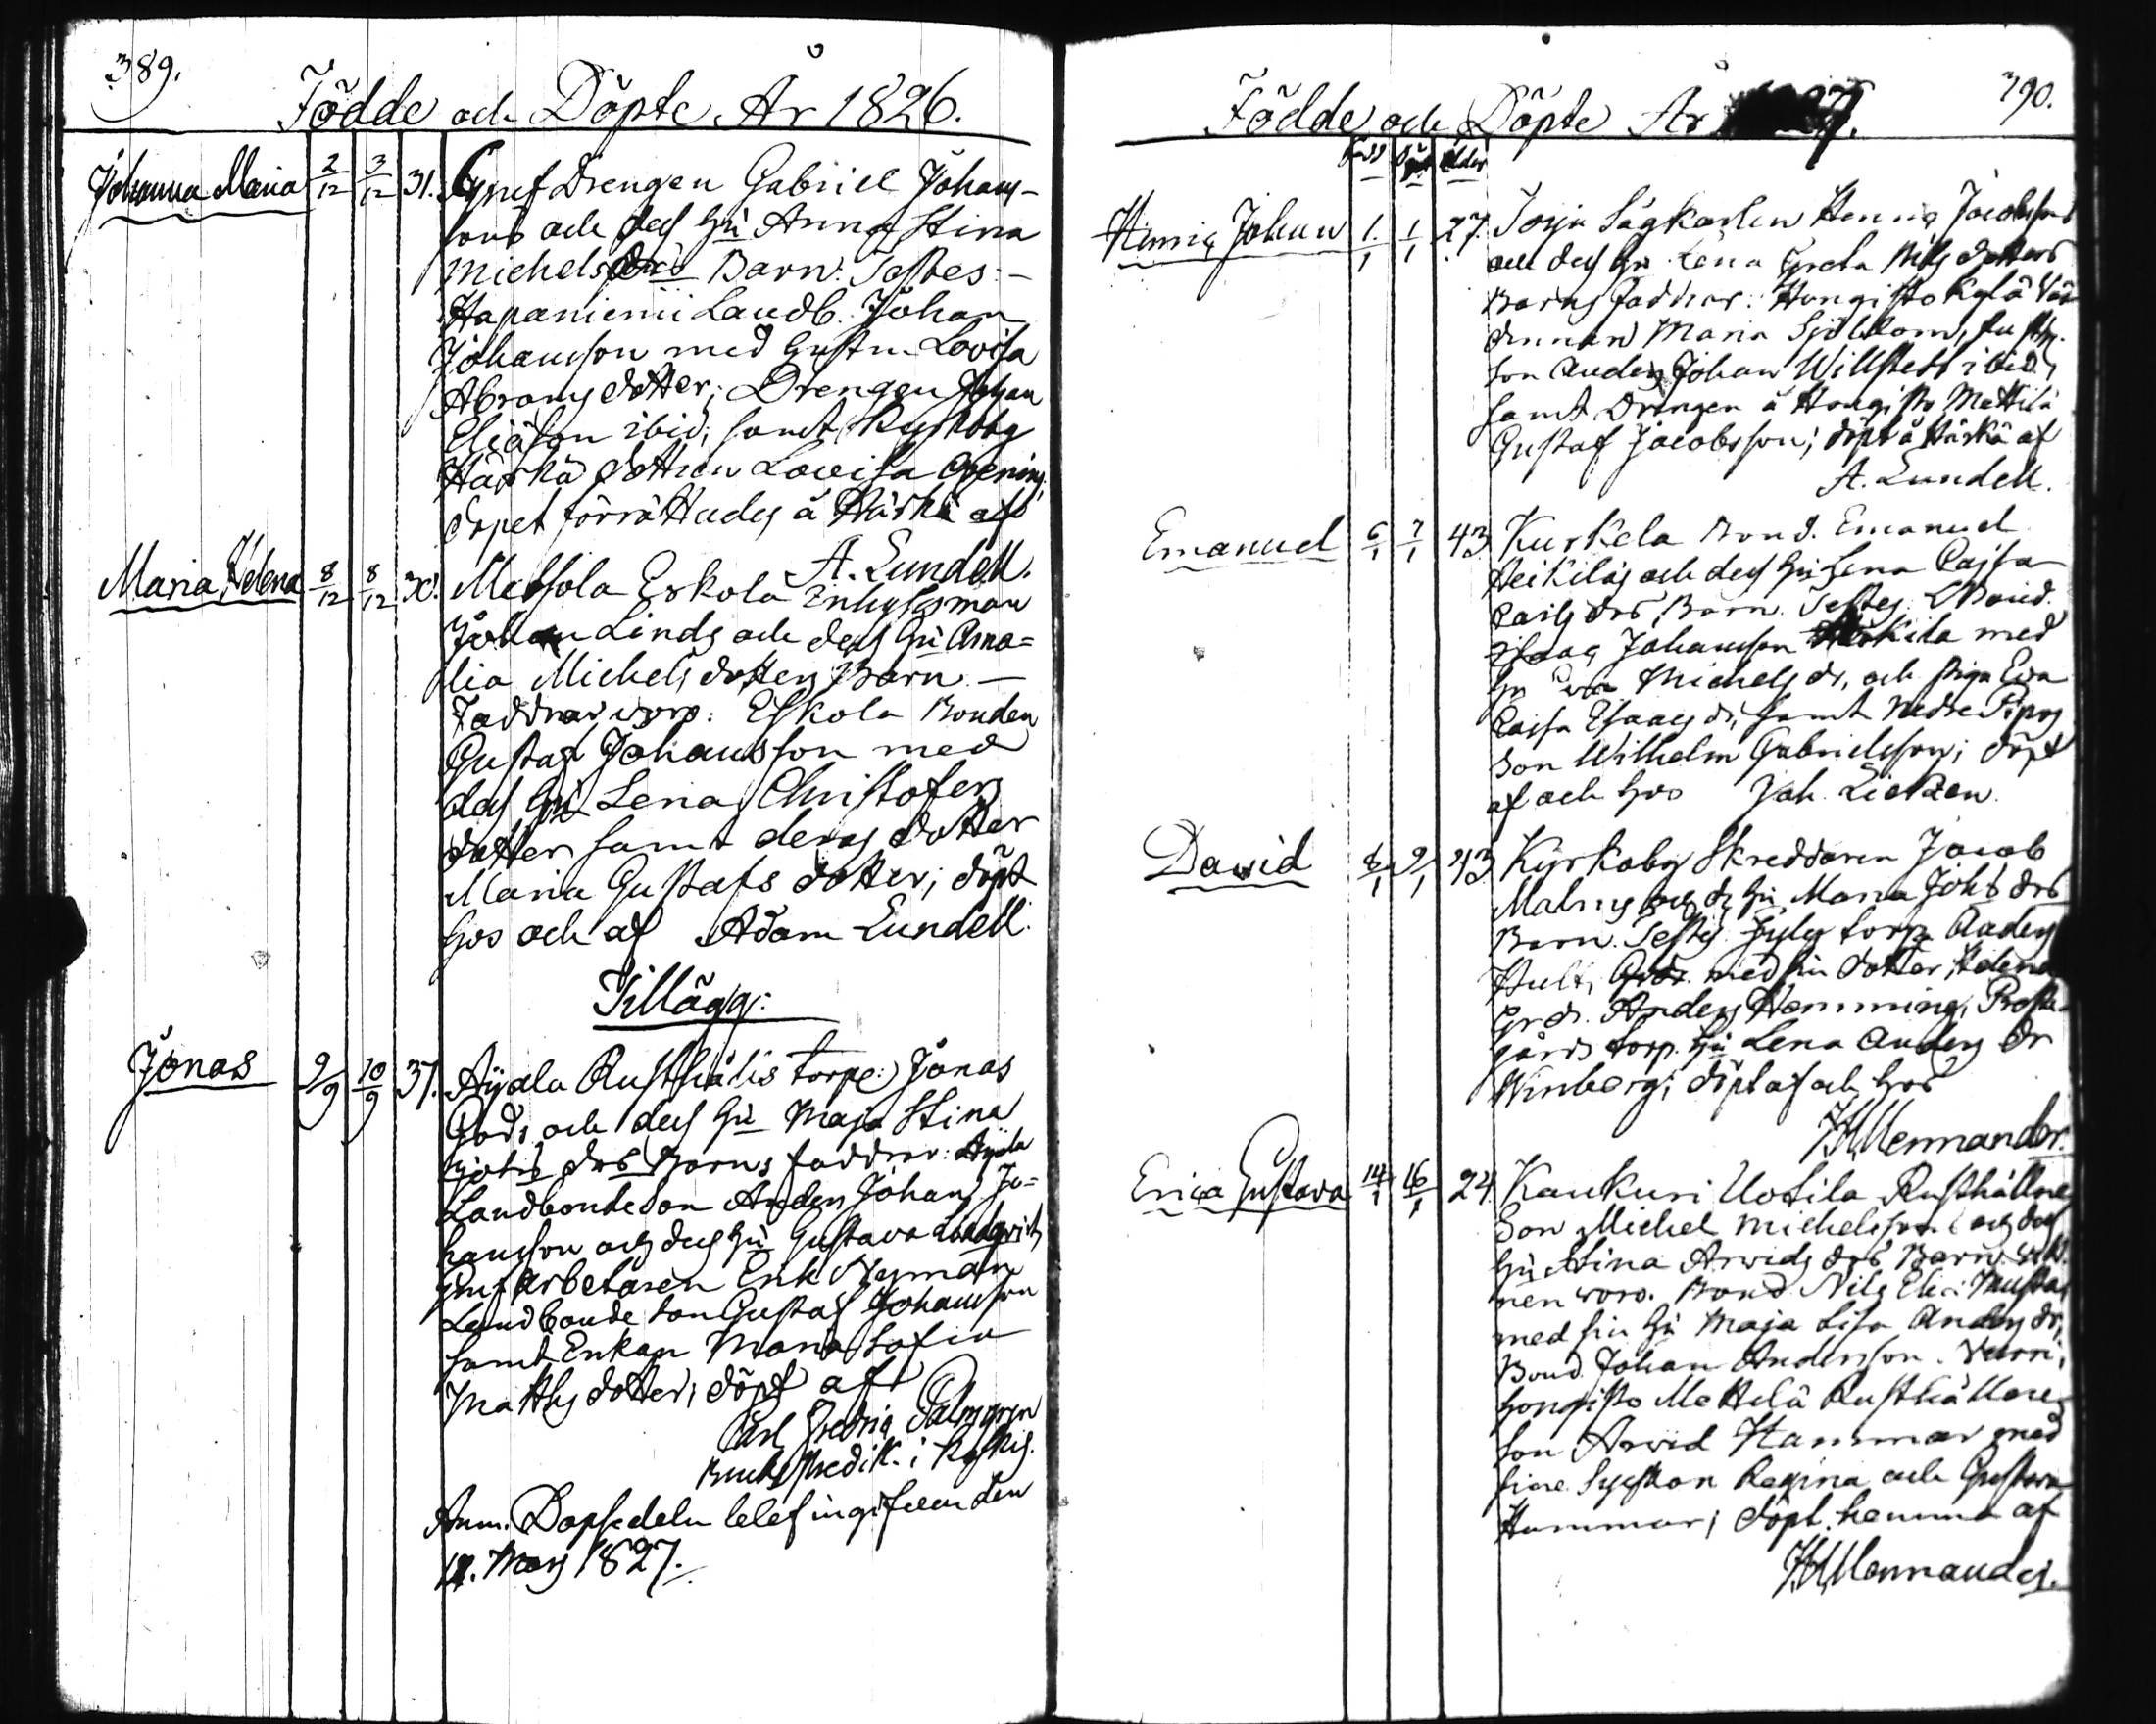 389.
Födde och Döpte År 1826.
Johanna Maria 2/12 3/12 31. Drengen Gabriel Johans-
sons och des Hu Anna Stina
Michels Barn. Testes:-
Hapaniemi Landb. Johan
Johansson med hustru Lovisa
Abrams dotter; Drengen Johan
Eliasson ibid; samt Kyrkoby
Härkä dottren Lovisa
Dopet förrättades å Härkä af
A. Lundell.
Maria Helena 8/12 8/12 30. Metsola Eskola Inhysesman
Johan Linds och des Hu Ama-
lia Michels dotters Barn -
Faddrar voro: Eskola Bonden
Gustaf Johansson med
des Hu Lena Christofers
dotter samt deras dotter
Maria Gustafs dotter; döpt
hos och af Adam Lundell.
Tillägg:
Jonas 9/9 10/9 37. Ayala Rusthålls torp: Jonas
och des Hu Maja Stina
drs Barns faddrar: Ayala
Landbonde Son Anders Johans Jo-
hansson och des Hu Gustava
arbetaren Erik Nyman
Landbonde son Gustaf Johansson
samt Enkan Maria Sofia
Matths dotter; döpt af
Carl Fredric Palmgren
Bruks Predik. i Koskis.
Anm. Dopsedeln blef ingifven den
12. May 1827.
390.
Födde och Döpte År 1827.
Född Döpt ålder
Henric Johan 1/1 1/1 27. Torja Sågkarlen Henric Jacobssons
och des Hu Lena Greta Nils dotters
Barns Faddrar: Hongisto Kylä
Maria Sjöblom,
son Anders Johan Willstett ibid,
samt Drengen å Hongisto Mattila
Gustaf Jacobsson; döpt å Härkä af
A. Lundell.
Emanuel 6/1 7/1 43 Kurkela Bond. Emanuel
Heikiläs och des Hu Lena Cajsa
Carls drs Barn. Testes: Bond.
Isaac Johansson Heikila med
Hu Eva Michels dr, och piga Eva
Cajsa Esaacs dr, samt Nedre Pipos
Son Wilhelm Gabrielsson; döpt
af och hos Joh. Lietzen.
David 6/1 9/1 43 Kyrkoby Skreddaren Jacob
Malms och ds Hu Maria Johs drs
Barn. Testes: torp. Anders
Hult, med sin dotter Helena
Anders Hemming, Preste-
gårds torp. Hu Lena Anders dr
Winberg; döpt af och hos
J.H. Mennander.
Erica Gustava 14/1 16/1 24. Kaukuri Uotila Rusthållare
Son Michel Michelssons och des
Hu Stina Arvids drs Barn.
nen voro. Bond. Nils Elis: Mustas
med sin Hu Maja Lisa Anders dr,
Bond. Johan Andersson.
Hongisto Mattila Rusthållare
son Arvid Hammar med
sine Syskon Regina och Gustava
Hammar; döpt hemma af
J.H. Mennander.